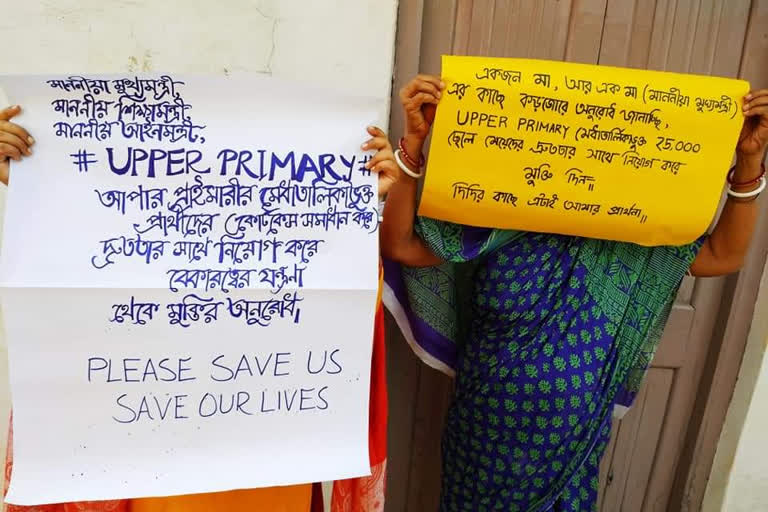 মাননীয়া মুখ্যমন্ত্রী,
মাননীয় শিক্ষামন্ত্রী,
মাননীয় আইনমন্ত্রী,
# UPPER PRIMARY #
আপার প্রাইমারীর মেধাতালিকাভুক্ত
প্রার্থীদের কোর্টকেস সমাধান করে
দ্রুততার সাথে নিয়োগ করে
বেকারত্বের যন্ত্রনা
থেকে মুক্তির অনুরোধ,
PLEASE SAVE US
SAVE OUR LIVES
একজন মা, আর এক মা (মাননীয়া মুখ্যমন্ত্রী)
এর কাছে করজোরে অনুরোধ জানাচ্ছি,
UPPER PRIMARY মেধাতালিকাভুক্ত 25000
ছেলে মেয়েদের দ্রুততার সাথে নিয়োগ করে
মুক্তি দিন॥
দিদির কাছে এটাই আমার প্রার্থনা॥